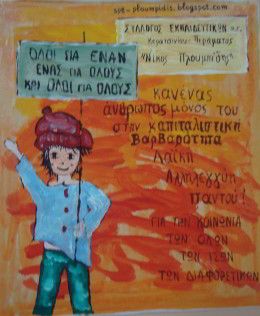 spe-ploumpidis.blogspot.com
ΣΥΛΛΟΓΟΣ ΕΚΠΑΙΔΕΥΤΙΚΩΝ π.ε.
Κερατσινίου-Περάματος
"Νίκος Πλουμπίδης"
ΟΛΟΙ ΓΙΑ ΕΝΑΝ
ΕΝΑΣ ΓΙΑ ΟΛΟΥΣ
ΚΑΙ ΟΛΟΙ ΓΙΑ ΟΛΟΥΣ
κανένας
άνθρωπος μόνος του
στην καπιταλιστική
βαρβαρότητα
Λαϊκή
Αλληλεγγύη
παντού!
ΓΙΑ ΤΗΝ ΚΟΙΝΩΝΙΑ
ΤΩΝ ΟΛΩΝ
ΤΩΝ ΙΣΩΝ
ΤΩΝ ΔΙΑΦΟΡΕΤΙΚΩΝ